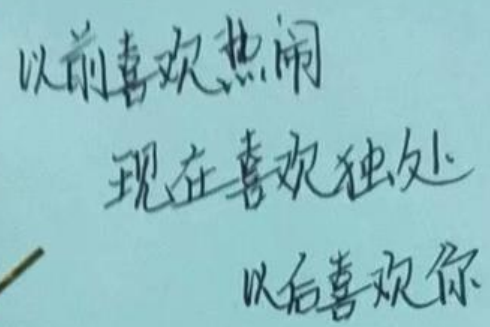 以前喜欢热闹
现在喜欢独处
以后喜欢你